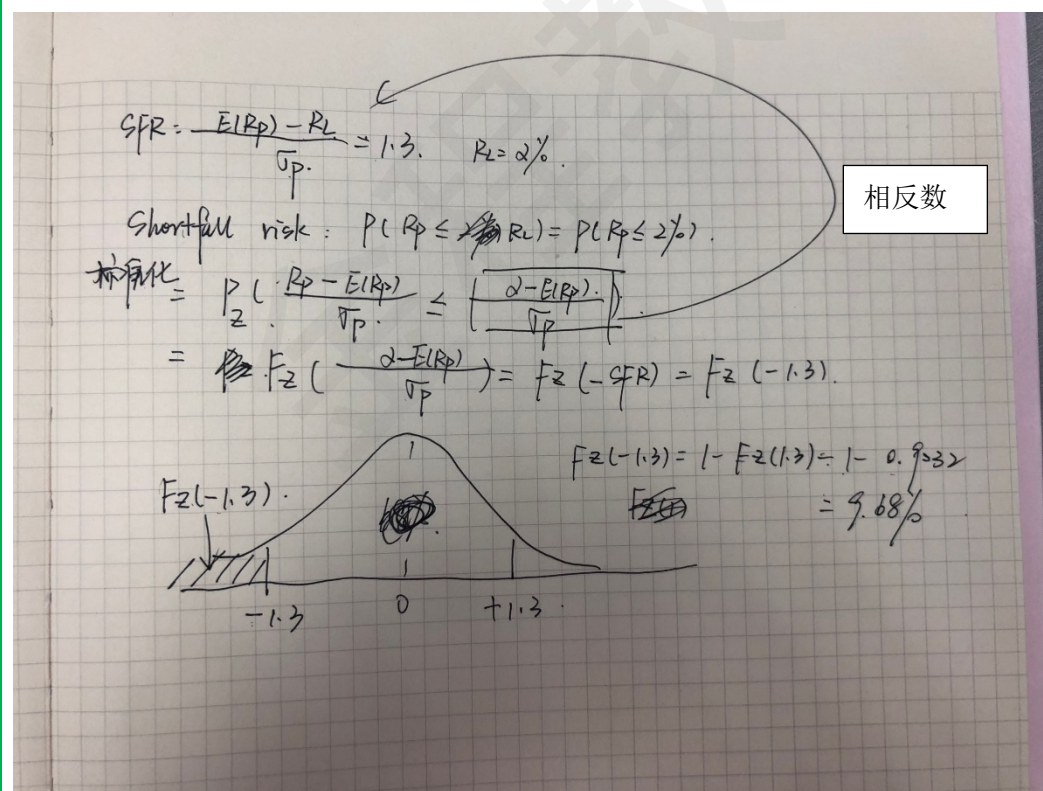 SFR = E(Rp) - RL / σp. = 1.3. RL = 2%.
相反数
Shortfall risk: P( Rp ≤ RL) = P(Rp ≤ 2%).
标准化 = Pz ( Rp - E(Rp) / σp. ≤ 2 - E(Rp). / σp ).
= Fz ( 2 - E(Rp) / σp ) = Fz (-SFR) = Fz (-1.3).
Fz(-1.3) = 1 - Fz(1.3) = 1 - 0.9032
Fz(-1.3).
= 9.68%
-1.3 0 +1.3